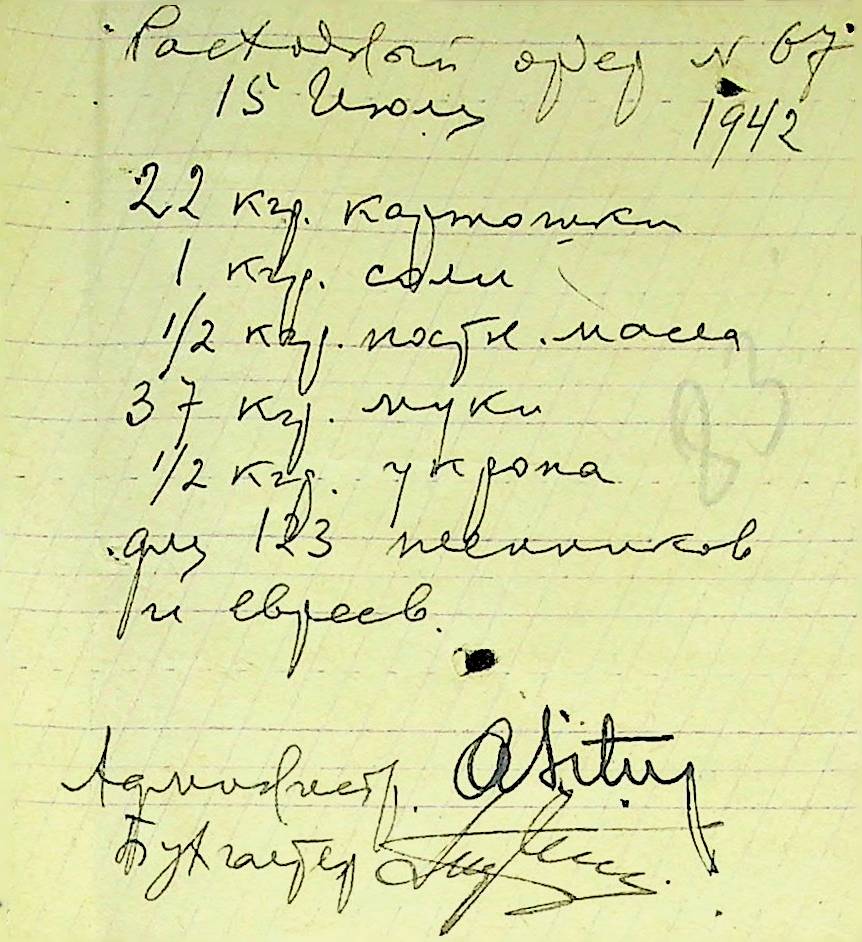 Расходный ордер N 67.
15 Июля 1942
22 кгр. картошки
1 кгр. соли
1/2 кгр. постн. масла
37 кгр. муки
1/2 кгр. укропа
83
для 123 пленников
и евреев.
Администр.
Бухгалтер